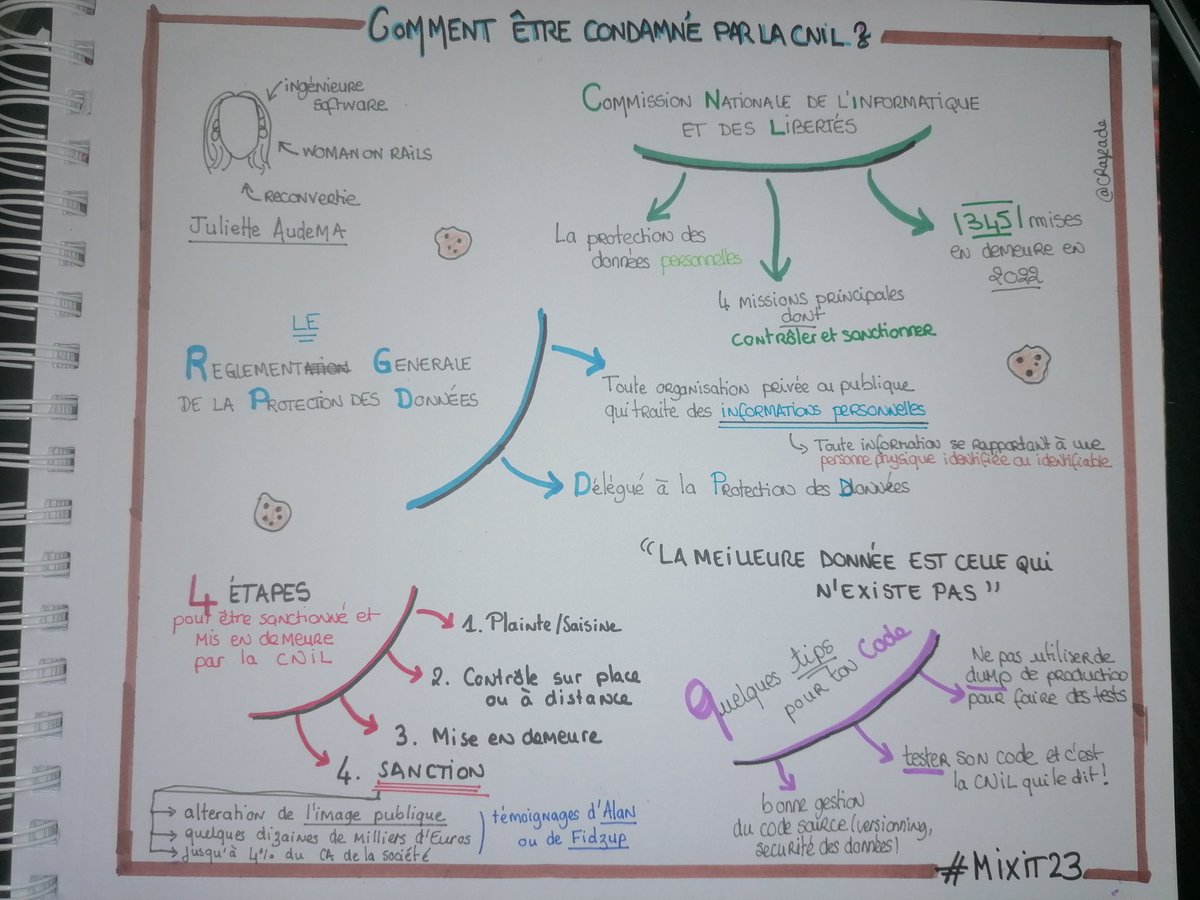 COMMENT ÊTRE CONDAMNÉ PAR LA CNIL ?
ingénieure
software
WOMAN ON RAILS
RECONVERTIE
Juliette AudeMA
COMMISSION NATIONALE DE L'INFORMATIQUE
ET DES LIBERTÉS
@CRayeade
La protection des
données personnelles
4 missions principales
dont
contrôler et sanctionner
|345| mises
en demeure en
2022
LE
REGLEMENTATION GENERALE
DE LA PROTECTION DES DONNÉES
Toute organisation privée ou publique
qui traite des informations personnelles
Toute information se rapportant à une
personne physique identifiée ou identifiable
Délégué à la Protection des Données
"LA MEILLEURE DONNÉE EST CELLE QUI
N'EXISTE PAS"
4 ÉTAPES
pour être sanctionné et
Mis en demeure
par la CNIL
1. Plainte/Saisine
2. Contrôle sur place
ou à distance
3. Mise en demeure
4. SANCTION
alteration de l'image publique
quelques dizaines de milliers d'Euros
jusqu'à 4% du CA de la société
témoignages d'Alan
ou de Fidzup
Quelques tips
pour ton Code
Ne pas utiliser de
dump de production
pour faire des tests
tester son code et c'est
la CNIL qui le dit !
bonne gestion
du code source (versionning,
securité des données)
#MixIT23